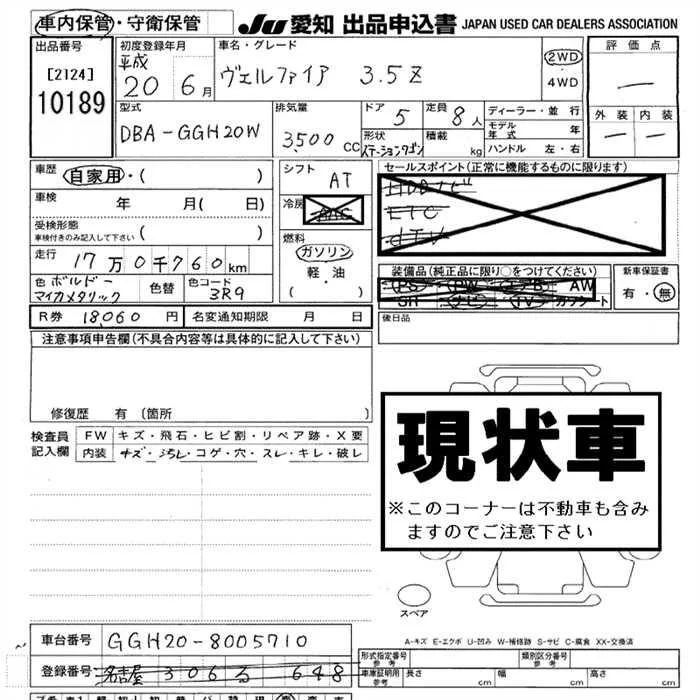 車内保管・守衛保管 JU 愛知 出品申込書 JAPAN USED CAR DEALERS ASSOCIATION
出品番号 [2124] 10189
初度登録年月 平成 20 6月
車名・グレード ヴェルファイア 3.5Z
2WD・4WD
評価点 —
外装 — 内装 —
型式 DBA-GGH20W
排気量 3500cc
ドア 5
定員 8人
形状 ステーションワゴン
積載 kg
ディーラー・並行
モデル年式 年
ハンドル 左・右
車歴 自家用・( )
車検 年 月( 日)
受検形態
車検付きのみ記入して下さい ( )
走行 17万0千760km
色 ボルドーマイカメタリック 色替 色コード 3R9
シフト AT
冷房 AAC
燃料 ガソリン・軽油・( )
セールスポイント(正常に機能するものに限ります)
HDDナビ
ETC
dTV
装備品(純正品に限り○をつけてください)
PS PW エアB AW
SR ナビ TV カワシート
新車保証書 有・無
R券 18,060円 名変通知期限 月 日
後日品
注意事項申告欄(不具合内容等は具体的に記入して下さい)
修復歴 有 (箇所 )
検査員記入欄
FW キズ・飛石・ヒビ割・リペア跡・X要
内装 キズ・汚レ・コゲ・穴・スレ・キレ・破レ
現状車
※このコーナーは不動車も含み
ますのでご注意下さい
スペア
A-キズ E-エクボ U-凹み W-補修跡 S-サビ C-腐食 XX-交換済
車台番号 GGH20-8005710
登録番号 名古屋 306 る 648
形式指定番号 参考 類別区分番号 参考
車庫証明用 参考 長さ 幅 高さ